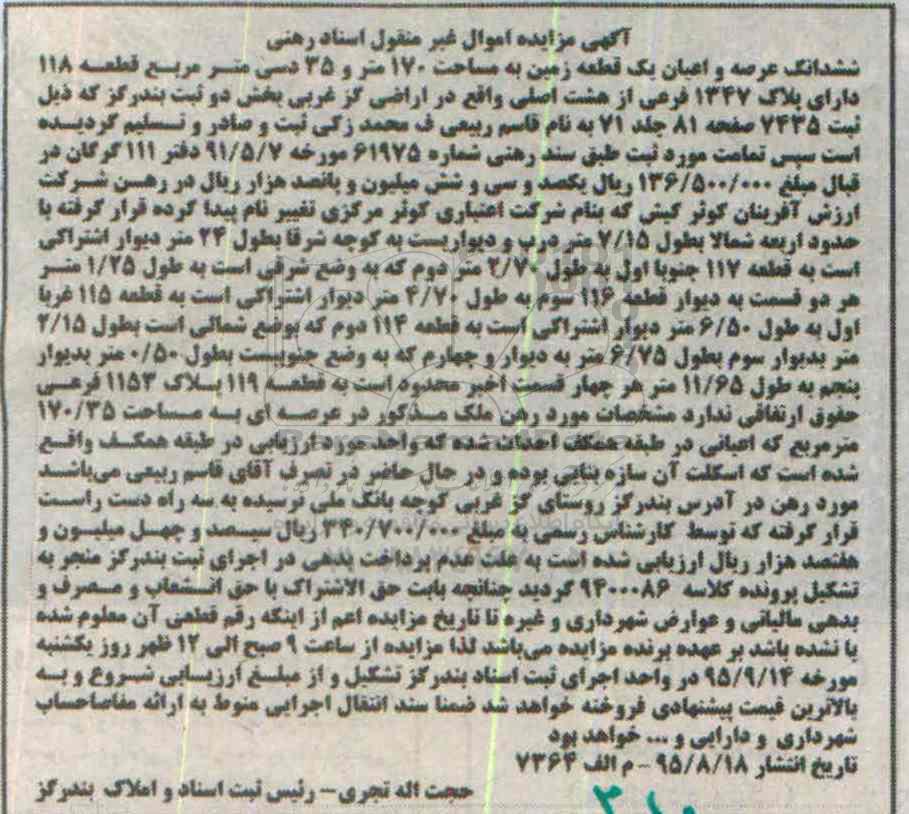 آگهی مزایده اموال غیر منقول اسناد رهنی
ششدانگ عرصه و اعیان یک قطعه زمین به مساحت ۱۷۰ متر و ۳۵ دسی متر مربع قطعه ۱۱۸
دارای پلاک ۱۳۴۷ فرعی از هشت اصلی واقع در اراضی گز غربی بخش دو ثبت بندرگز که ذیل
ثبت ۷۴۳۵ صفحه ۸۱ جلد ۷۱ به نام قاسم ربیعی ف محمد زکی ثبت و صادر و تسلیم گردیده
است سپس تمامت مورد ثبت طبق سند رهنی شماره ۶۱۹۷۵ مورخه ۹۱/۵/۷ دفتر ۱۱۱ گرگان در
قبال مبلغ ۱۳۶/۵۰۰/۰۰۰ ریال یکصد و سی و شش میلیون و پانصد هزار ریال در رهن شرکت
ارزش آفرینان کوثر کیش که بنام شرکت اعتباری کوثر مرکزی تغییر نام پیدا کرده قرار گرفته با
حدود اربعه شمالا بطول ۷/۱۵ متر درب و دیواریست به کوچه شرقا بطول ۲۴ متر دیوار اشتراکی
است به قطعه ۱۱۷ جنوبا اول به طول ۲/۷۰ متر دوم که به وضع شرقی است به طول ۱/۲۵ متر
هر دو قسمت به دیوار قطعه ۱۱۶ سوم به طول ۴/۷۰ متر دیوار اشتراکی است به قطعه ۱۱۵ غربا
اول به طول ۶/۵۰ متر دیوار اشتراکی است به قطعه ۱۱۴ دوم که بوضع شمالی است بطول ۲/۱۵
متر بدیوار سوم بطول ۶/۷۵ متر به دیوار و چهارم که به وضع جنوبیست بطول ۰/۵۰ متر بدیوار
پنجم به طول ۱۱/۶۵ متر هر چهار قسمت اخیر محدود است به قطعه ۱۱۹ پلاک ۱۱۵۳ فرعی
حقوق ارتفاقی ندارد مشخصات مورد رهن ملک مذکور در عرصه ای به مساحت ۱۷۰/۳۵
مترمربع که اعیانی در طبقه همکف احداث شده که واحد مورد ارزیابی در طبقه همکف واقع
شده است که اسکلت آن سازه بنایی بوده و در حال حاضر در تصرف آقای قاسم ربیعی می‌باشد
مورد رهن در آدرس بندرگز روستای گز غربی کوچه بانک ملی نرسیده به سه راه دست راست
قرار گرفته که توسط کارشناس رسمی به مبلغ ۳۴۰/۷۰۰/۰۰۰ ریال سیصد و چهل میلیون و
هفتصد هزار ریال ارزیابی شده است به علت عدم پرداخت بدهی در اجرای ثبت بندرگز منجر به
تشکیل پرونده کلاسه ۹۴۰۰۰۸۶ گردید چنانچه بابت حق الاشتراک یا حق انشعاب و مصرف و
بدهی مالیاتی و عوارض شهرداری و غیره تا تاریخ مزایده اعم از اینکه رقم قطعی آن معلوم شده
یا نشده باشد بر عهده برنده مزایده می‌باشد لذا مزایده از ساعت ۹ صبح الی ۱۲ ظهر روز یکشنبه
مورخه ۹۵/۹/۱۴ در واحد اجرای ثبت اسناد بندرگز تشکیل و از مبلغ ارزیابی شروع و به
بالاترین قیمت پیشنهادی فروخته خواهد شد ضمنا سند انتقال اجرایی منوط به ارائه مفاصاحساب
شهرداری و دارایی و ... خواهد بود
تاریخ انتشار ۹۵/۸/۱۸ - م الف ۷۳۶۴
حجت اله تجری - رئیس ثبت اسناد و املاک بندرگز